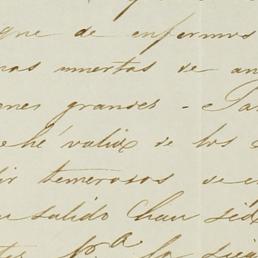 que de enfermos
nas muertas de an
enes grandes - Pa
eché valix de los
ir temerosos de
salido han sid